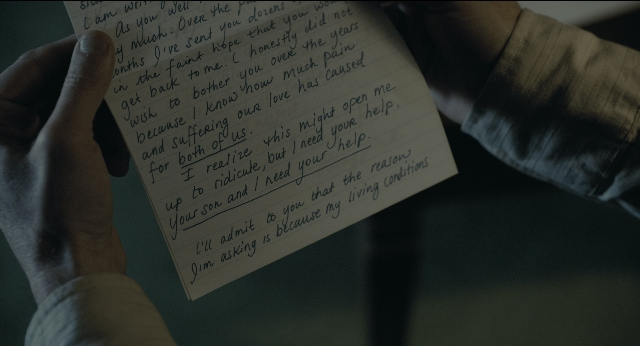 I am
As you well
much. Over the
months I've send you dozens
in the faint hope that you
get back to me. I honestly did not
wish to bother you over the years
because I know how much pain
and suffering our love has caused
for both of us.
I realize this might open me
up to ridicule, but I need your help.
Your son and I need your help.
I'll admit to you that the reason
I'm asking is because my living conditions